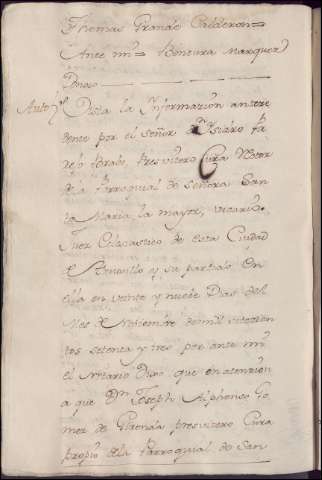 Thomas Grande Calderon=
Ante mi= Bentura Marquez
Donoso
Auto Vista la Informazion antece
dente por el señor Dn Isidro
Presvitero Cura Rector
de la Parroquial de Señora San
ta Maria la mayor, vicario,
Juez Eclesiastico de esta Ciudad
de y su partido En
ella en veinte y nueve Dias del
Mes de Noviembre de mil setecien
tos setenta y tres por ante mi
el Notario Dixo que en atencion
a que Dn Joseph Alphonso Go
mez de presvitero Cura
propio dela Parroquial de San